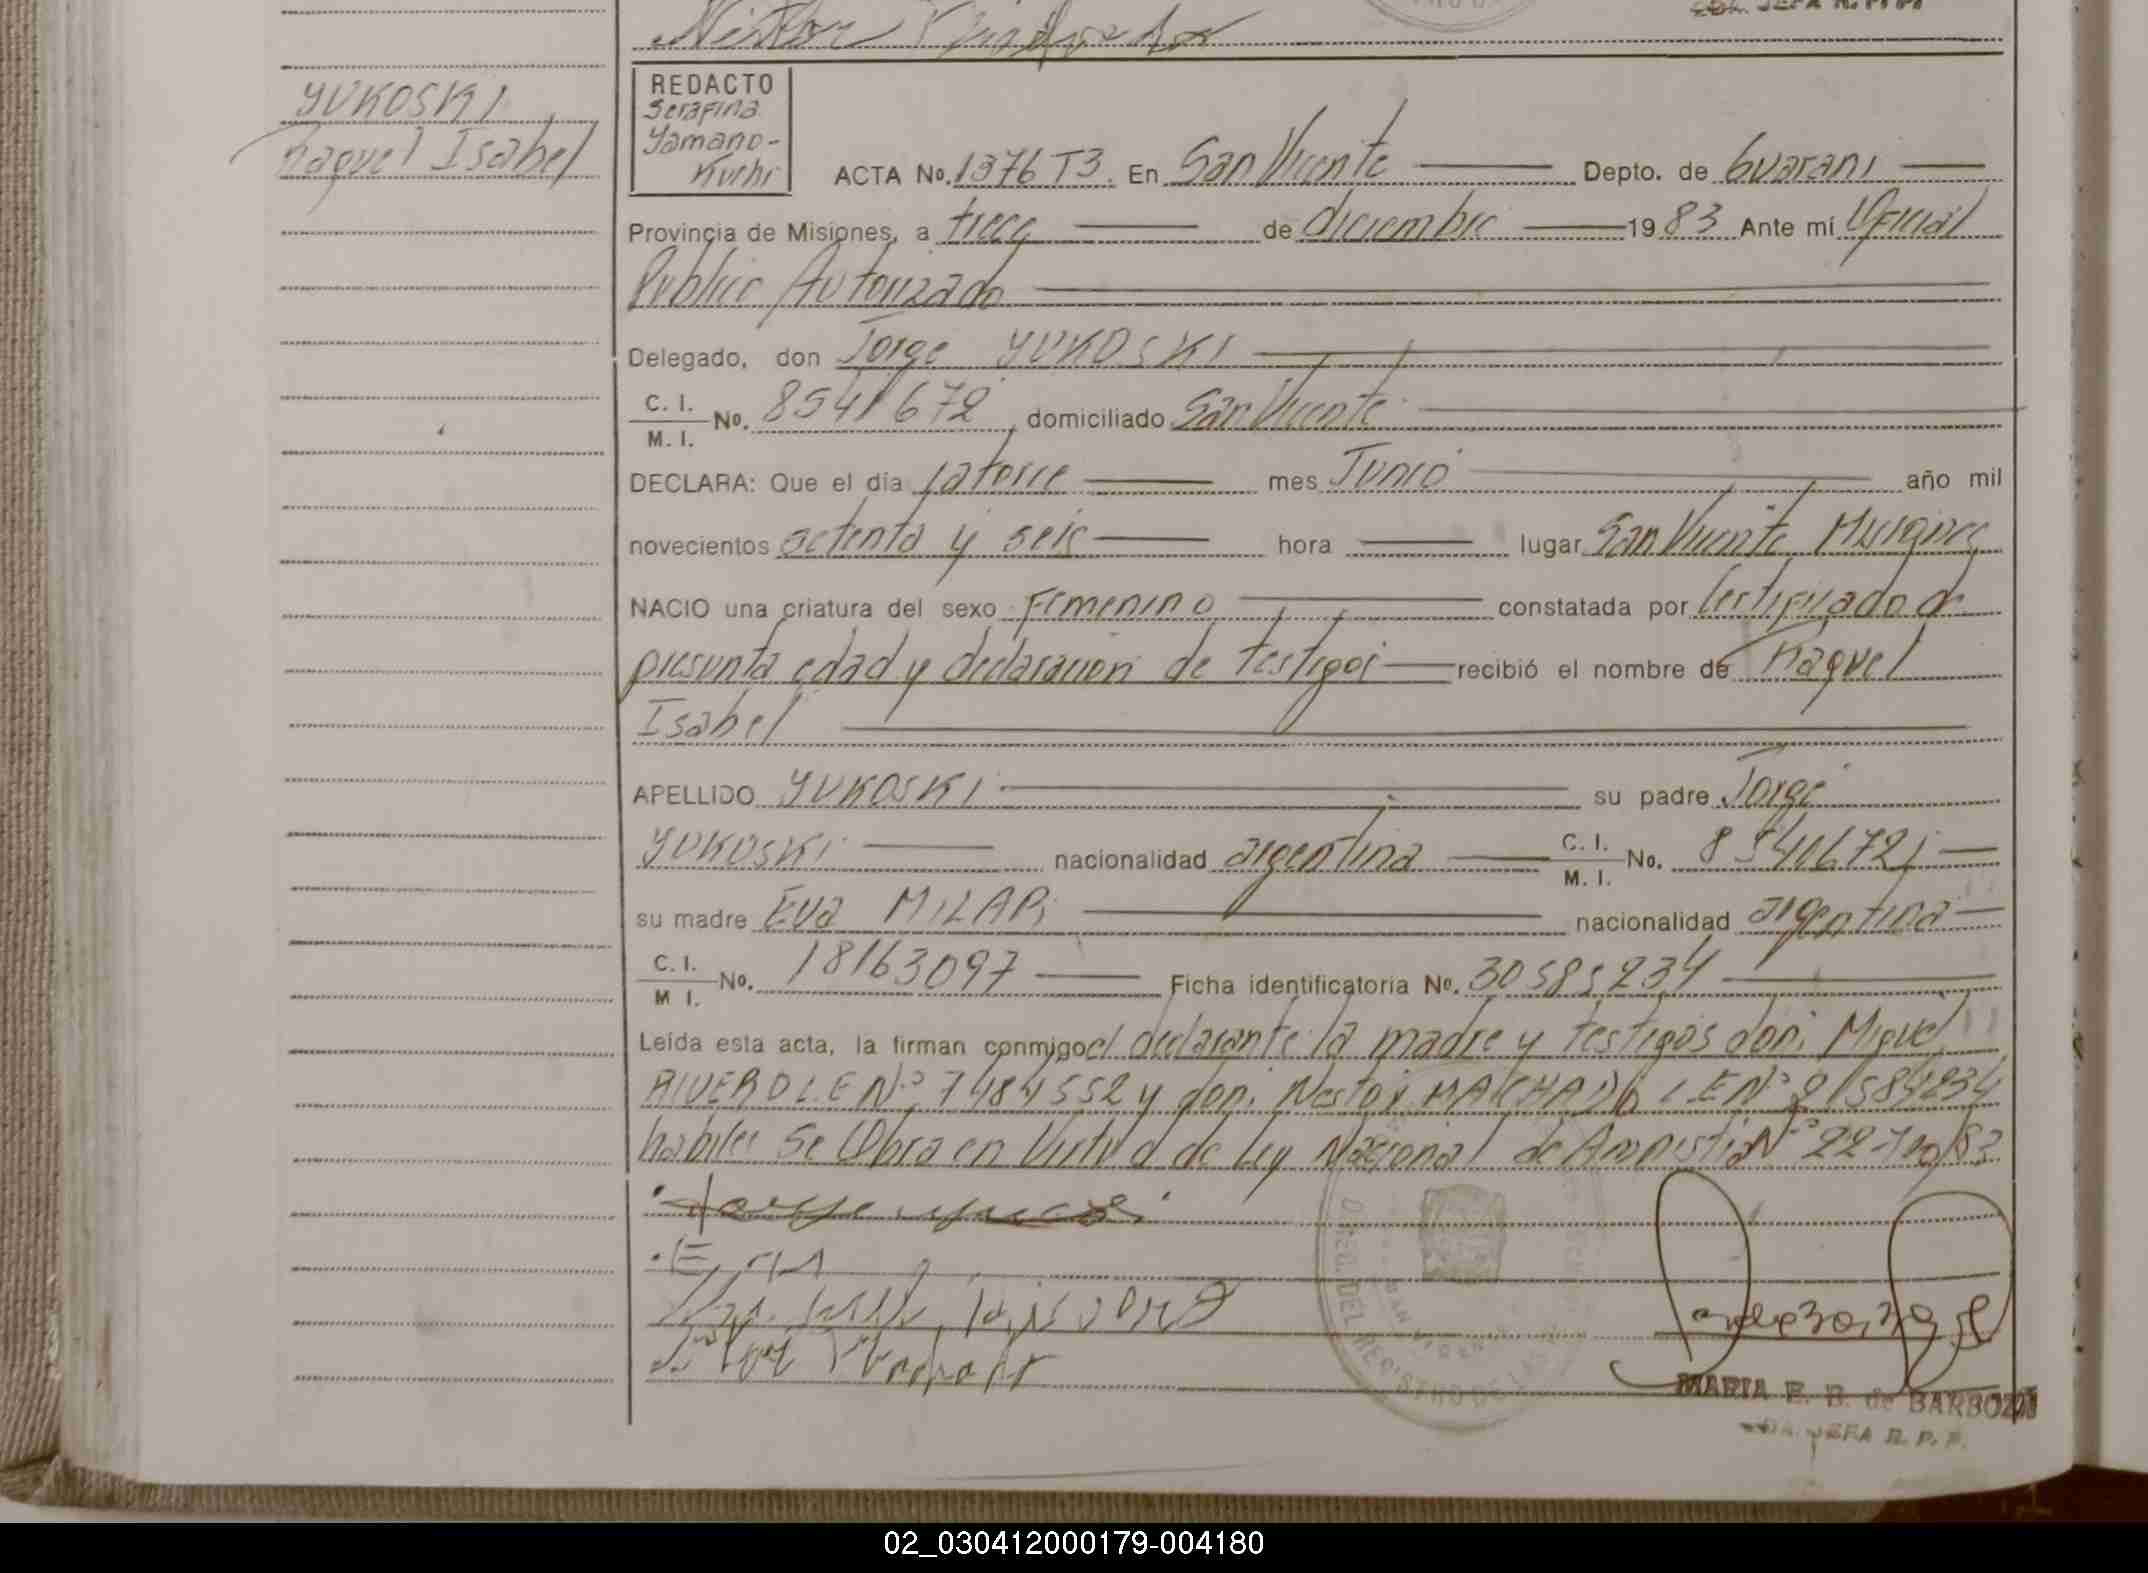 YUKOSKI
Raquel Isabel
REDACTO
Serafina
Yamano-
Kuchi
ACTA No. 1376 T3. En San Vicente Depto. de Guarani
Provincia de Misiones, a trece de diciembre 1983 Ante mí Oficial
Publico Autorizado
Delegado, don Jorge YUKOSKI
C. I.
M. I. No. 8541672 domiciliado San Vicente
DECLARA: Que el día catorce mes Junio año mil
novecientos setenta y seis hora lugar San Vicente Misiones
NACIO una criatura del sexo Femenino constatada por Certificado de
presunta edad y declaracion de testigos recibió el nombre de Raquel
Isabel
APELLIDO YUKOSKI su padre Jorge
YUKOSKI nacionalidad argentina C. I.
M. I. No. 8541672
su madre Eva MILAR nacionalidad argentina
C. I.
M I. No. 18163097 Ficha identificatoria No. 30585234
Leída esta acta, la firman conmigo el declarante la madre y testigos don: Miguel
RIVERO L.E Nº 7484552 y don: Nestor MACHADO LE Nº
habiles Se Obra en Virtud de Ley Nacional de Amnistia Nº
DIREC. DEL REGISTRO DE LAS
MARIA E. B. de BARBOZA
JEFA R. P. P.
02_030412000179-004180